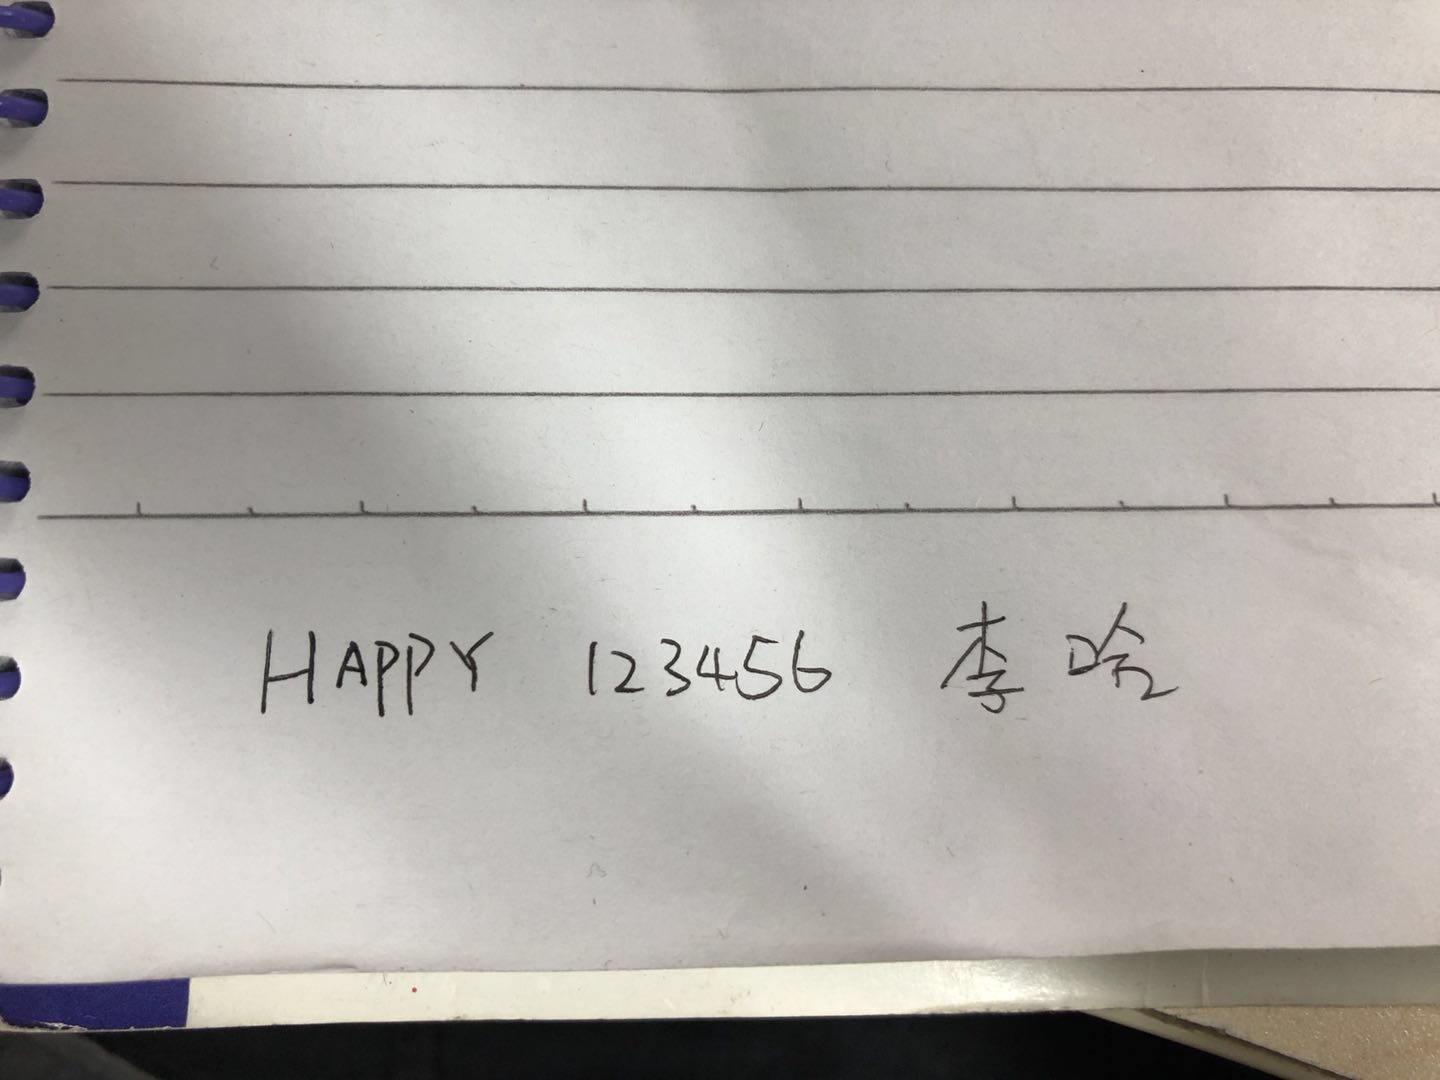 HAPPY 123456 李哈